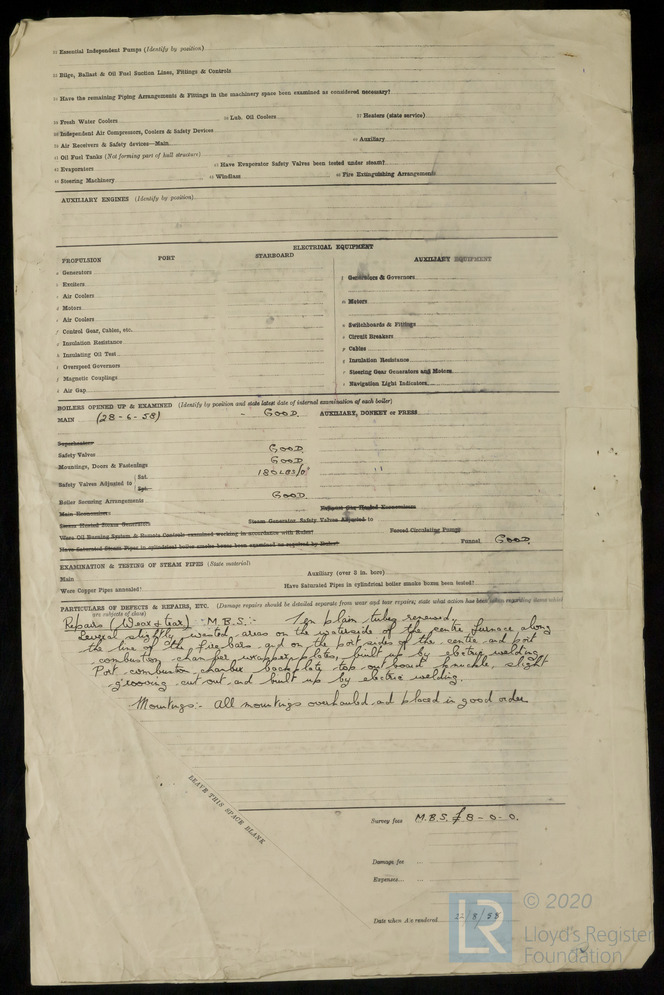 Essential Independent Pumps (Identify by position)
Bilge, Ballast & Oil Fuel Suction Lines, Fittings & Controls
Have the remaining Piping Arrangements & Fittings in the machinery space been examined as considered necessary?
Fresh Water Coolers Lub. Oil Coolers Heaters (state service)
Independent Air Compressors, Coolers & Safety Devices
Air Receivers & Safety devices—Main Auxiliary
Oil Fuel Tanks (Not forming part of hull structure)
Evaporators Have Evaporator Safety Valves been tested under steam?
Steering Machinery Windlass Fire Extinguishing Arrangements
AUXILIARY ENGINES (Identify by position)
ELECTRICAL EQUIPMENT
PROPULSION PORT STARBOARD AUXILIARY EQUIPMENT
Generators Generators & Governors
Exciters
Air Coolers
Motors Motors
Air Coolers
Control Gear, Cables, etc. Switchboards & Fittings
Insulation Resistance Circuit Breakers
Insulating Oil Test Cables
Overspeed Governors Insulation Resistance
Magnetic Couplings Steering Gear Generators and Motors
Air Gap Navigation Light Indicators
BOILERS OPENED UP & EXAMINED (Identify by position and state latest date of internal examination of each boiler)
MAIN (28-6-58) - GOOD AUXILIARY, DONKEY or PRESS
Superheaters
Safety Valves GOOD
Mountings, Doors & Fastenings GOOD
Safety Valves Adjusted to Sat. 180 LBS/□" "
Spt.
Boiler Securing Arrangements GOOD
Main Economisers Exhaust Gas Heated Economisers
Steam Heated Steam Generators Steam Generator Safety Valves Adjusted to
Were Oil Burning System & Remote Controls examined working in accordance with Rules? Forced Circulating Pumps
Have Saturated Steam Pipes in cylindrical boiler smoke boxes been examined as required by Rules? Funnel GOOD
EXAMINATION & TESTING OF STEAM PIPES (State material)
Main Auxiliary (over 3 in. bore)
Were Copper Pipes annealed? Have Saturated Pipes in cylindrical boiler smoke boxes been tested?
PARTICULARS OF DEFECTS & REPAIRS, ETC. (Damage repairs should be detailed separately from wear and tear repairs; state what action has been taken regarding items which
are subjects of class)
Repairs (Wear & tear) :- M.B.S.:- Ten plain tubes renewed.
Several slightly wasted areas on the waterside of the centre furnace along
the line of the fire bars and on the port sides of the centre and port
combustion chamber wrapper plates, built up by electric welding.
Port combustion chamber back plate top outboard knuckle, slight
grooving cut out and built up by electric welding.
Mountings:- All mountings overhauled and placed in good order
LEAVE THIS SPACE BLANK
Survey fees M.B.S. £8-0-0.
Damage fee ...
Expenses...
Date when A/c rendered 22/8/58
LR © 2020
Lloyd's Register
Foundation